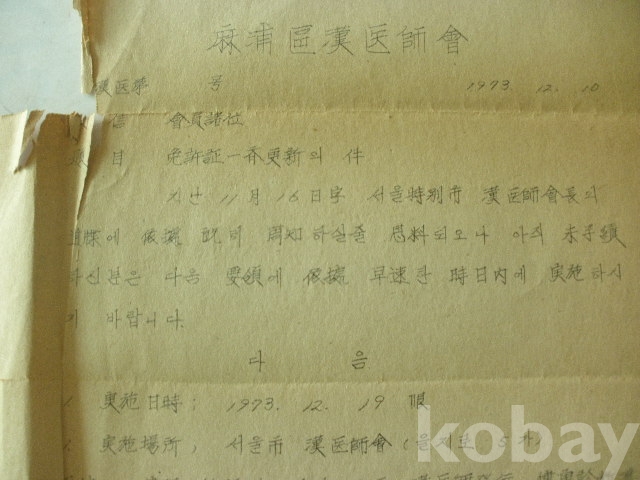 麻浦區漢医師會
漢医第 号 1973. 12. 10
信 會員諸位
目 免許証一斉更新의 件
지난 11月 16日字 서울特別市 漢医師會長의
通牒에 依據 既히 周知하실줄 思料되오나 아직 未手續
하신분은 다음 要領에 依據 早速한 時日內에 実施하시
기 바랍니다.
다 음
1. 実施日時; 1973. 12. 19 限
2. 実施場所; 서울市 漢医師會 (을지로 5가)
kobay